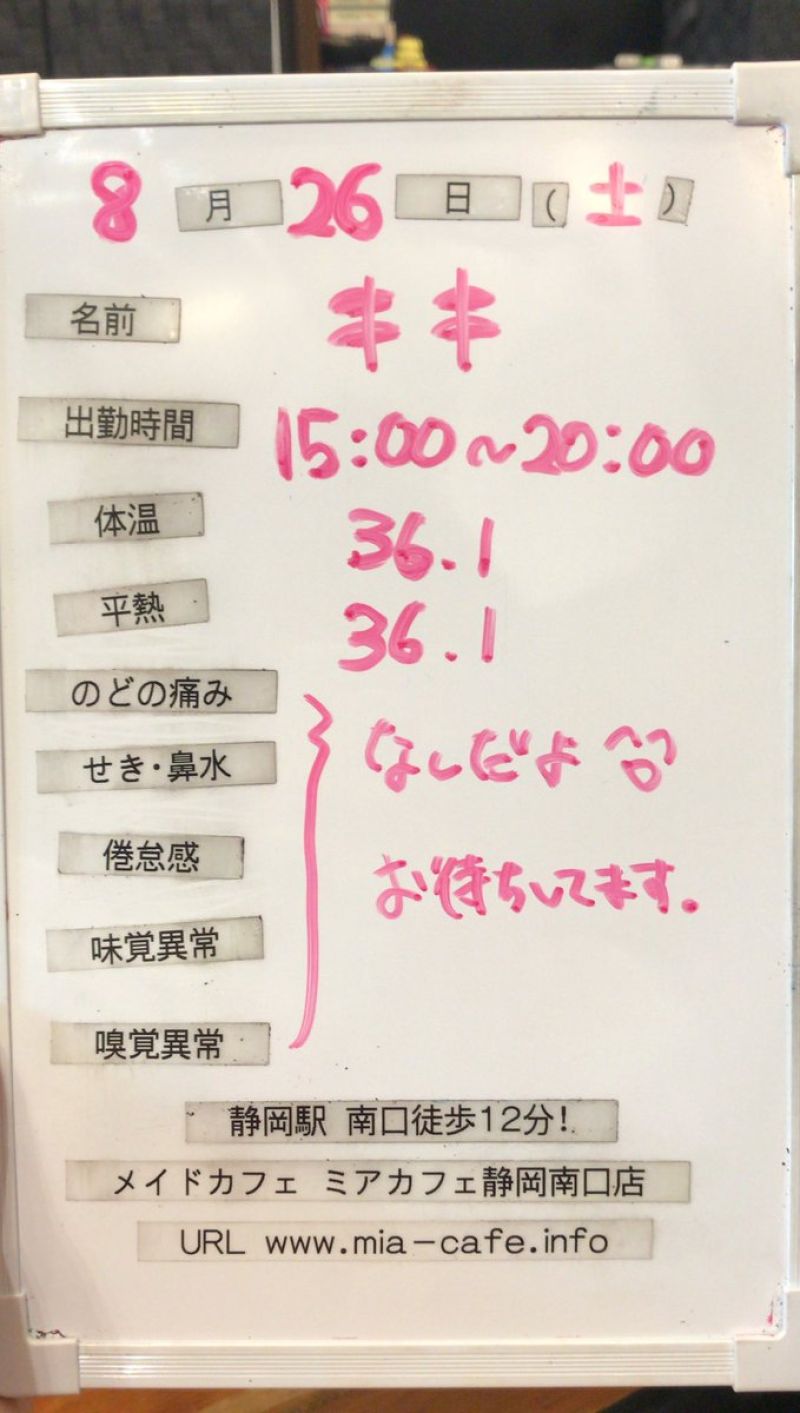 8月26日(土)
名前 キキ
出勤時間 15:00~20:00
体温 36.1
平熱 36.1
のどの痛み
せき・鼻水 なしだよ
倦怠感
お待ちしてます。
味覚異常
嗅覚異常
静岡駅 南口徒歩12分!
メイドカフェ ミアカフェ静岡南口店
URL www.mia-cafe.info